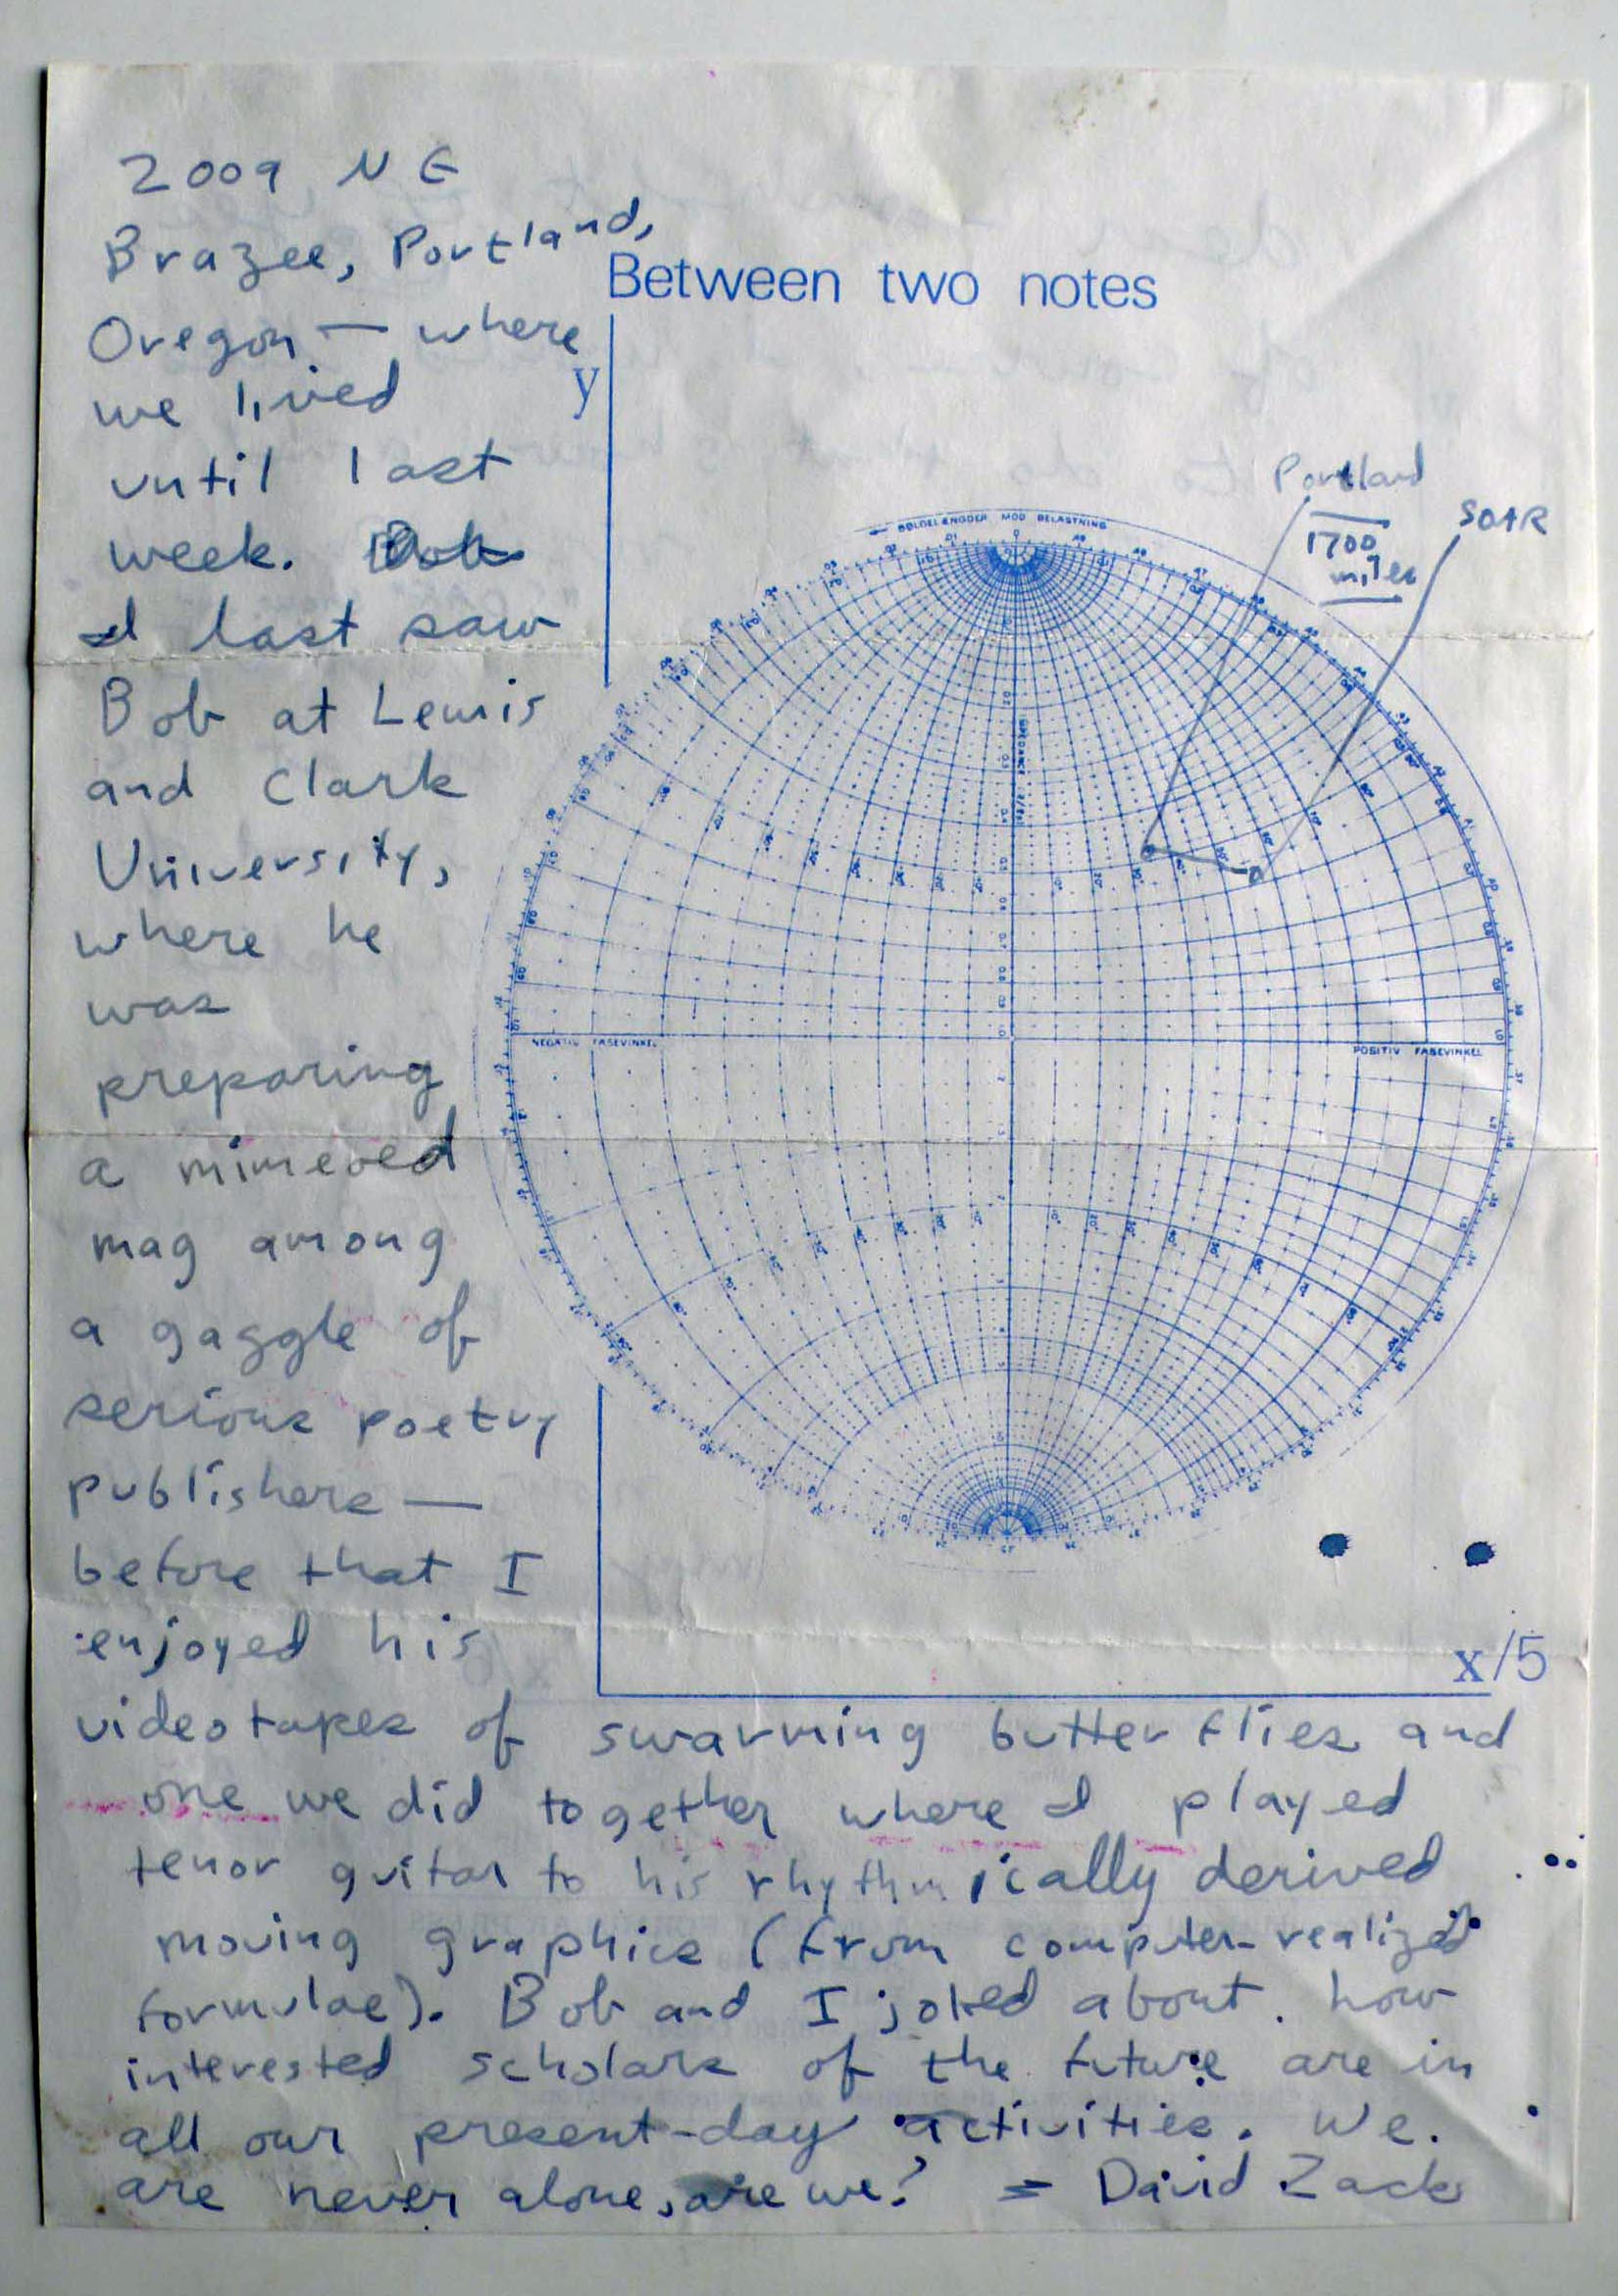 2009 NE
Brazee, Portland,
Oregon — where
we lived
until last
week. Bob
I last saw
Bob at Lewis
and Clark
University,
where he
was
preparing
a mimeoed
mag among
a gaggle of
serious poetry
publishers —
before that I
enjoyed his
videotapes of swarming butterflies and
one we did together where I played
tenor guitar to his rhythmically derived
moving graphics (from computer-realized
formulae). Bob and I joked about how
interested scholars of the future are in
all our present-day activities. We
are never alone, are we? = David Zack
Between two notes
y
Portland
1700
miles
SOAR
BØLGELÆNGDER MOD BELASTNING
NEGATIV FASEVINKEL
POSITIV FASEVINKEL
x/5